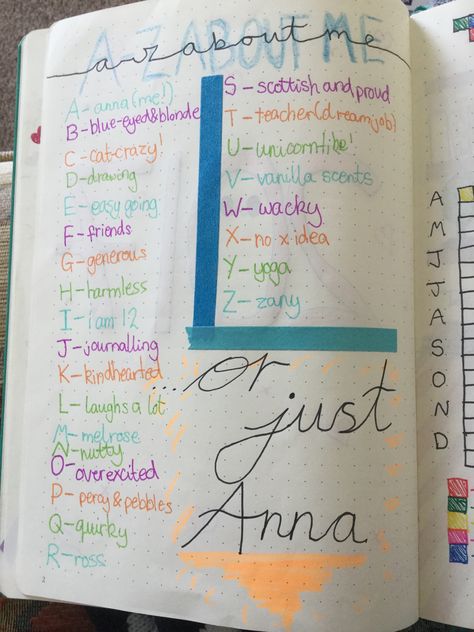 A-Z ABOUT ME
a-z about me
A-anna(me!)
B-blue-eyed&blonde
C-cat-crazy!
D-drawing
E-easy going
F-friends
G-generous
H-harmless
I-i am 12
J-journalling
K-kindhearted
L-laughs a lot
M-melrose
N-nutty
O-overexcited
P-percy&pebbles
Q-quirky
R-ross
S-scottish and proud
T-teacher(dream job)
U-unicorn-like!
V-vanilla scents
W-wacky
X-no x idea
Y-yoga
Z-zany
....or
just
Anna
2
A
M
J
J
A
S
O
N
D